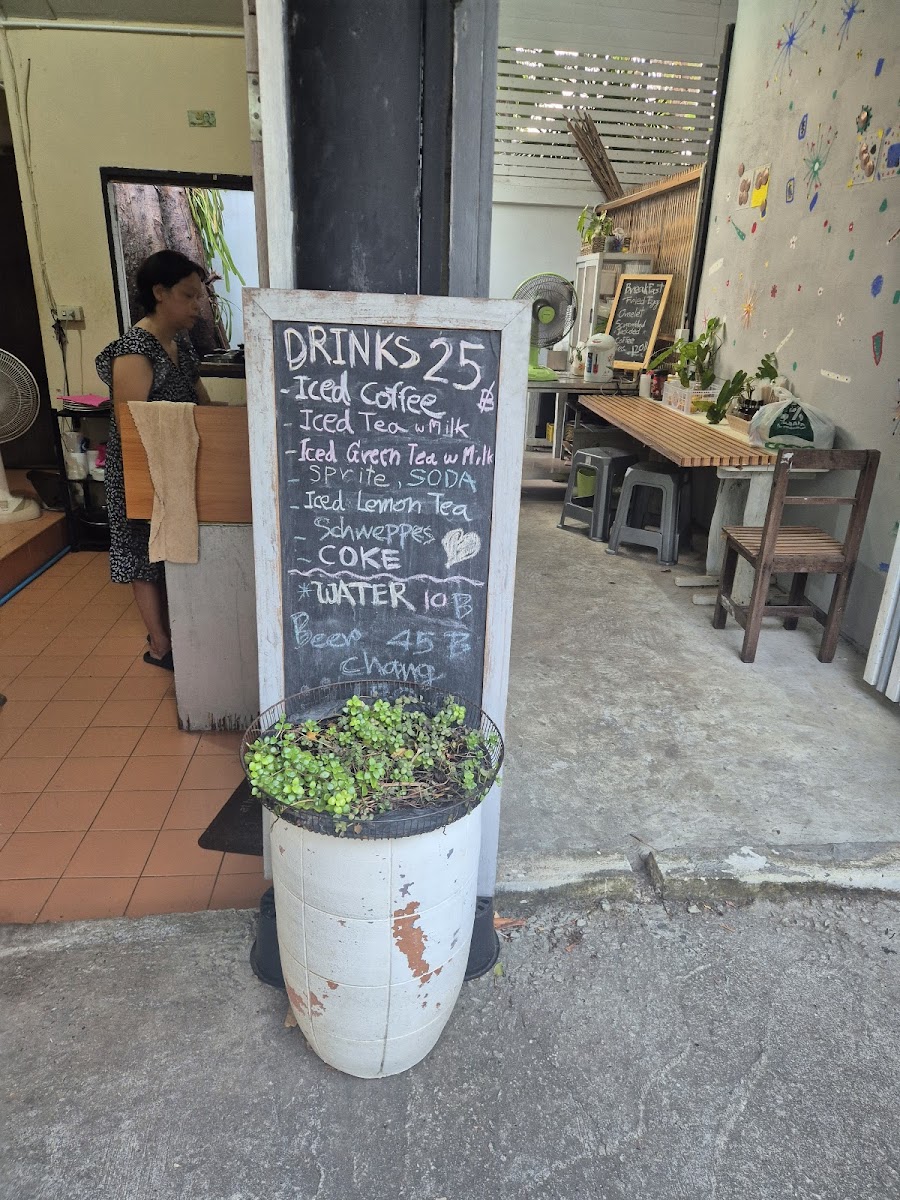 DRINKS 25 ฿
- Iced Coffee
- Iced Tea w Milk
- Iced Green Tea w Milk
- Sprite, SODA
- Iced Lemon Tea
- Schweppes
- COKE
*WATER 10 ฿
Beer 45 ฿
chang
Breakfast
Fried Egg
Omelet
Scrambled
Coffee
120